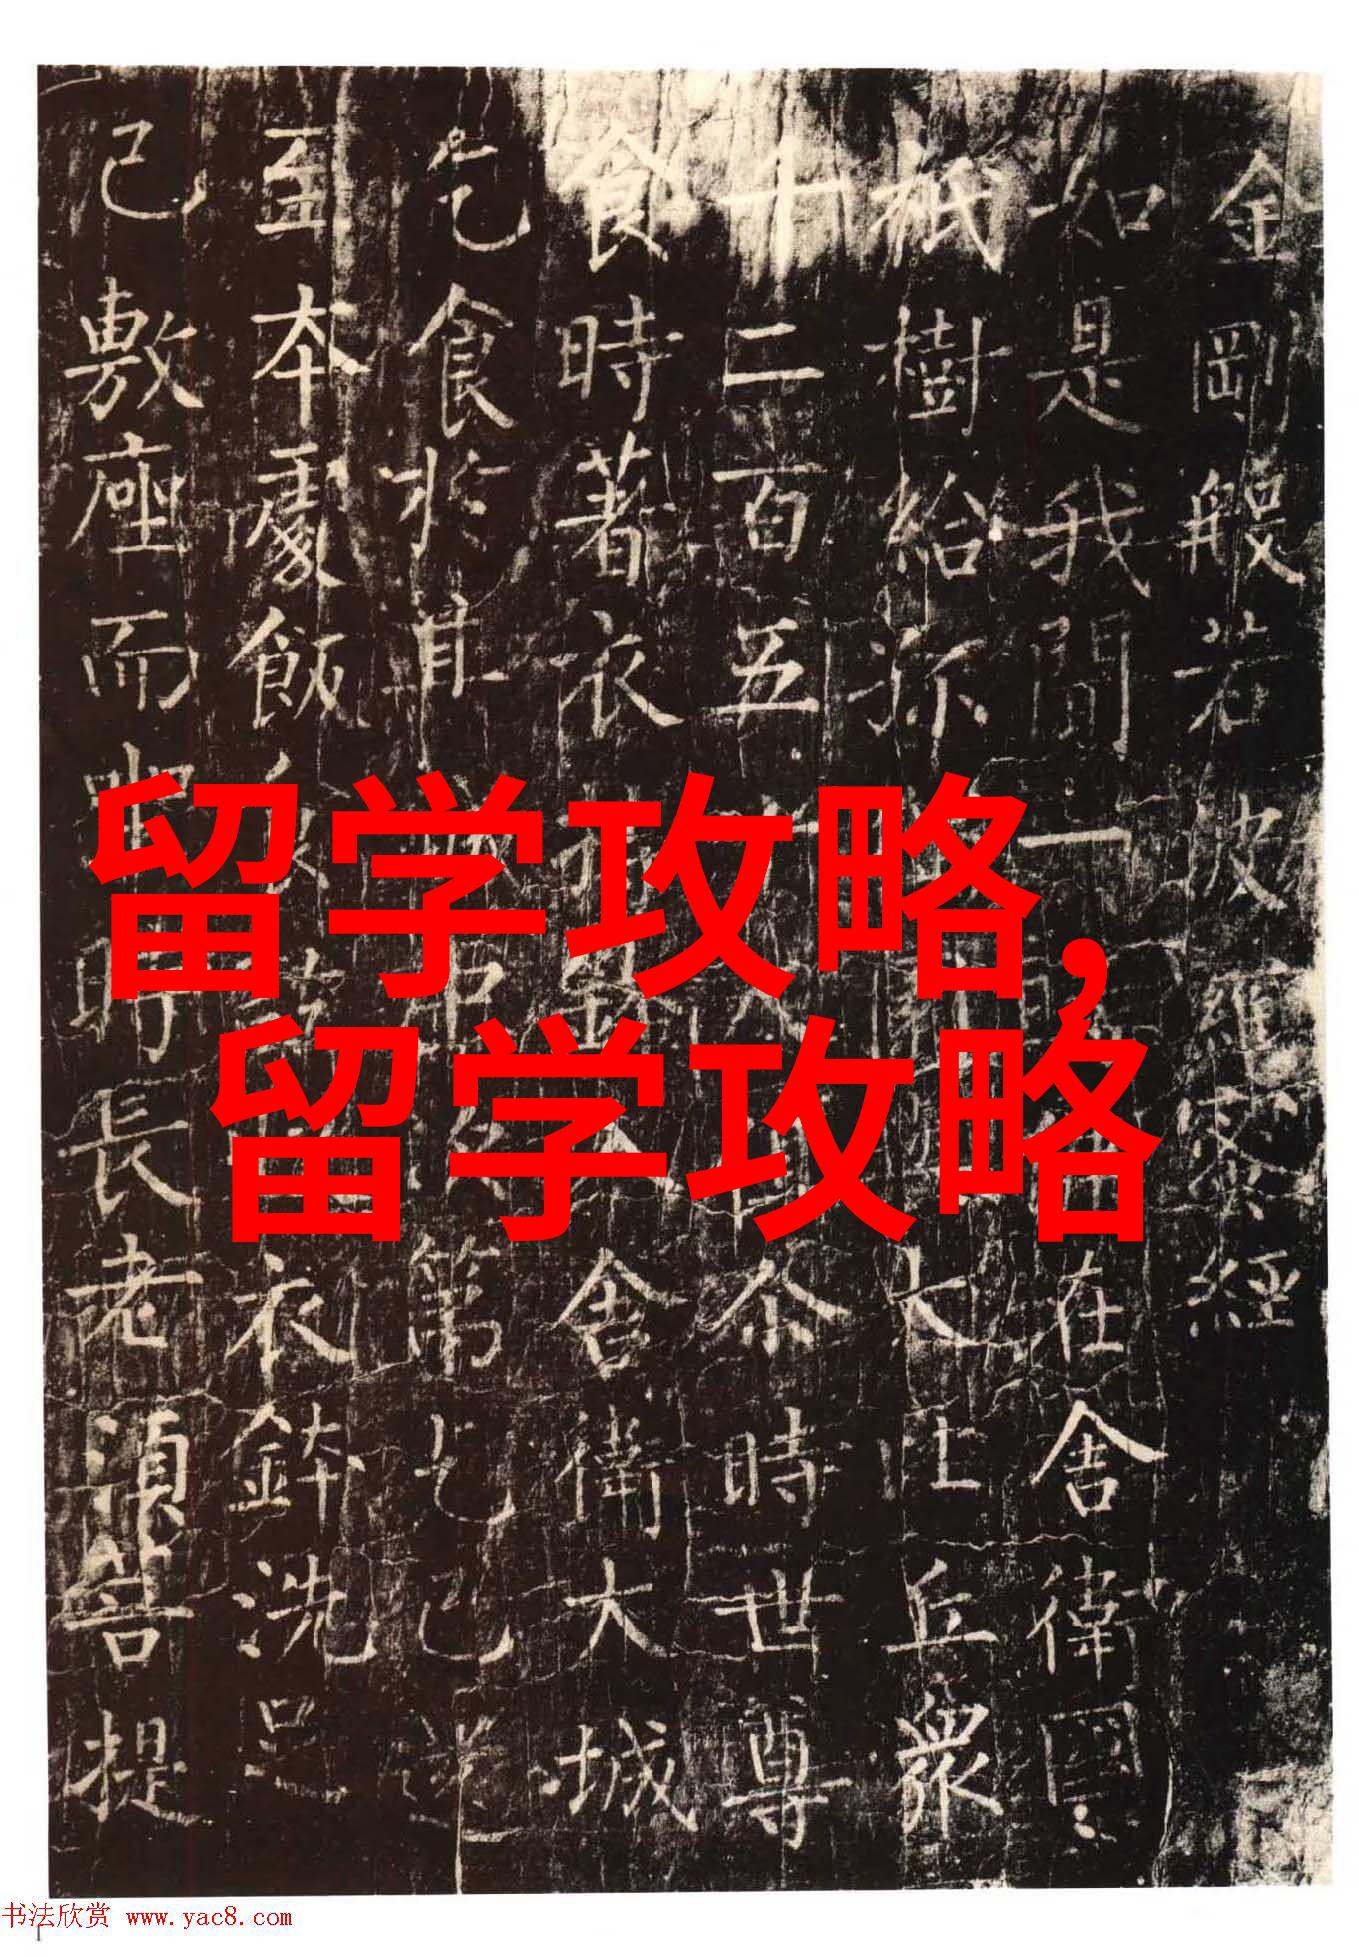 金剛般若波羅蜜經
如是我聞一在舍衛國
祇樹給孤大比丘眾
千二百五尒時世尊
食時著衣持舍衛大城
乞食於其城中第乞已還
至本處飯衣鉢洗足
已敷座而坐時長老須菩提
留学攻略,
留学攻略
书法欣赏 www.yac8.com